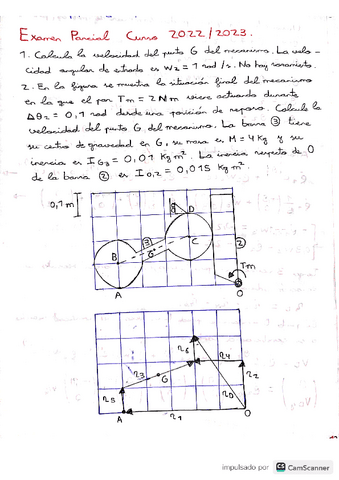 Examen Parcial Curso 2022/2023.
1. Calcula la velocidad del punto G del mecanismo. La velo-
cidad angular de entrada es W2 = 1 rad/s. No hay rozamiento.
2. En la figura se muestra la situación final del mecanismo
en la que el par Tm = 2Nm viene actuando durante
Δθ2 = 0,1 rad desde una posición de reposo. Calcula la
velocidad del punto G del mecanismo. La barra ③ tiene
su centro de gravedad en G, su masa es M = 4 Kg y su
inercia es IG3 = 0,01 Kg m². La inercia respecto de O
de la barra ② es I0,2 = 0,015 Kg m².
0,1 m
D
③
B
G
C
②
Tm
A
O
r6
r4
r3
G
r2
r5
r0
A
r1
O
impulsado por CS CamScanner